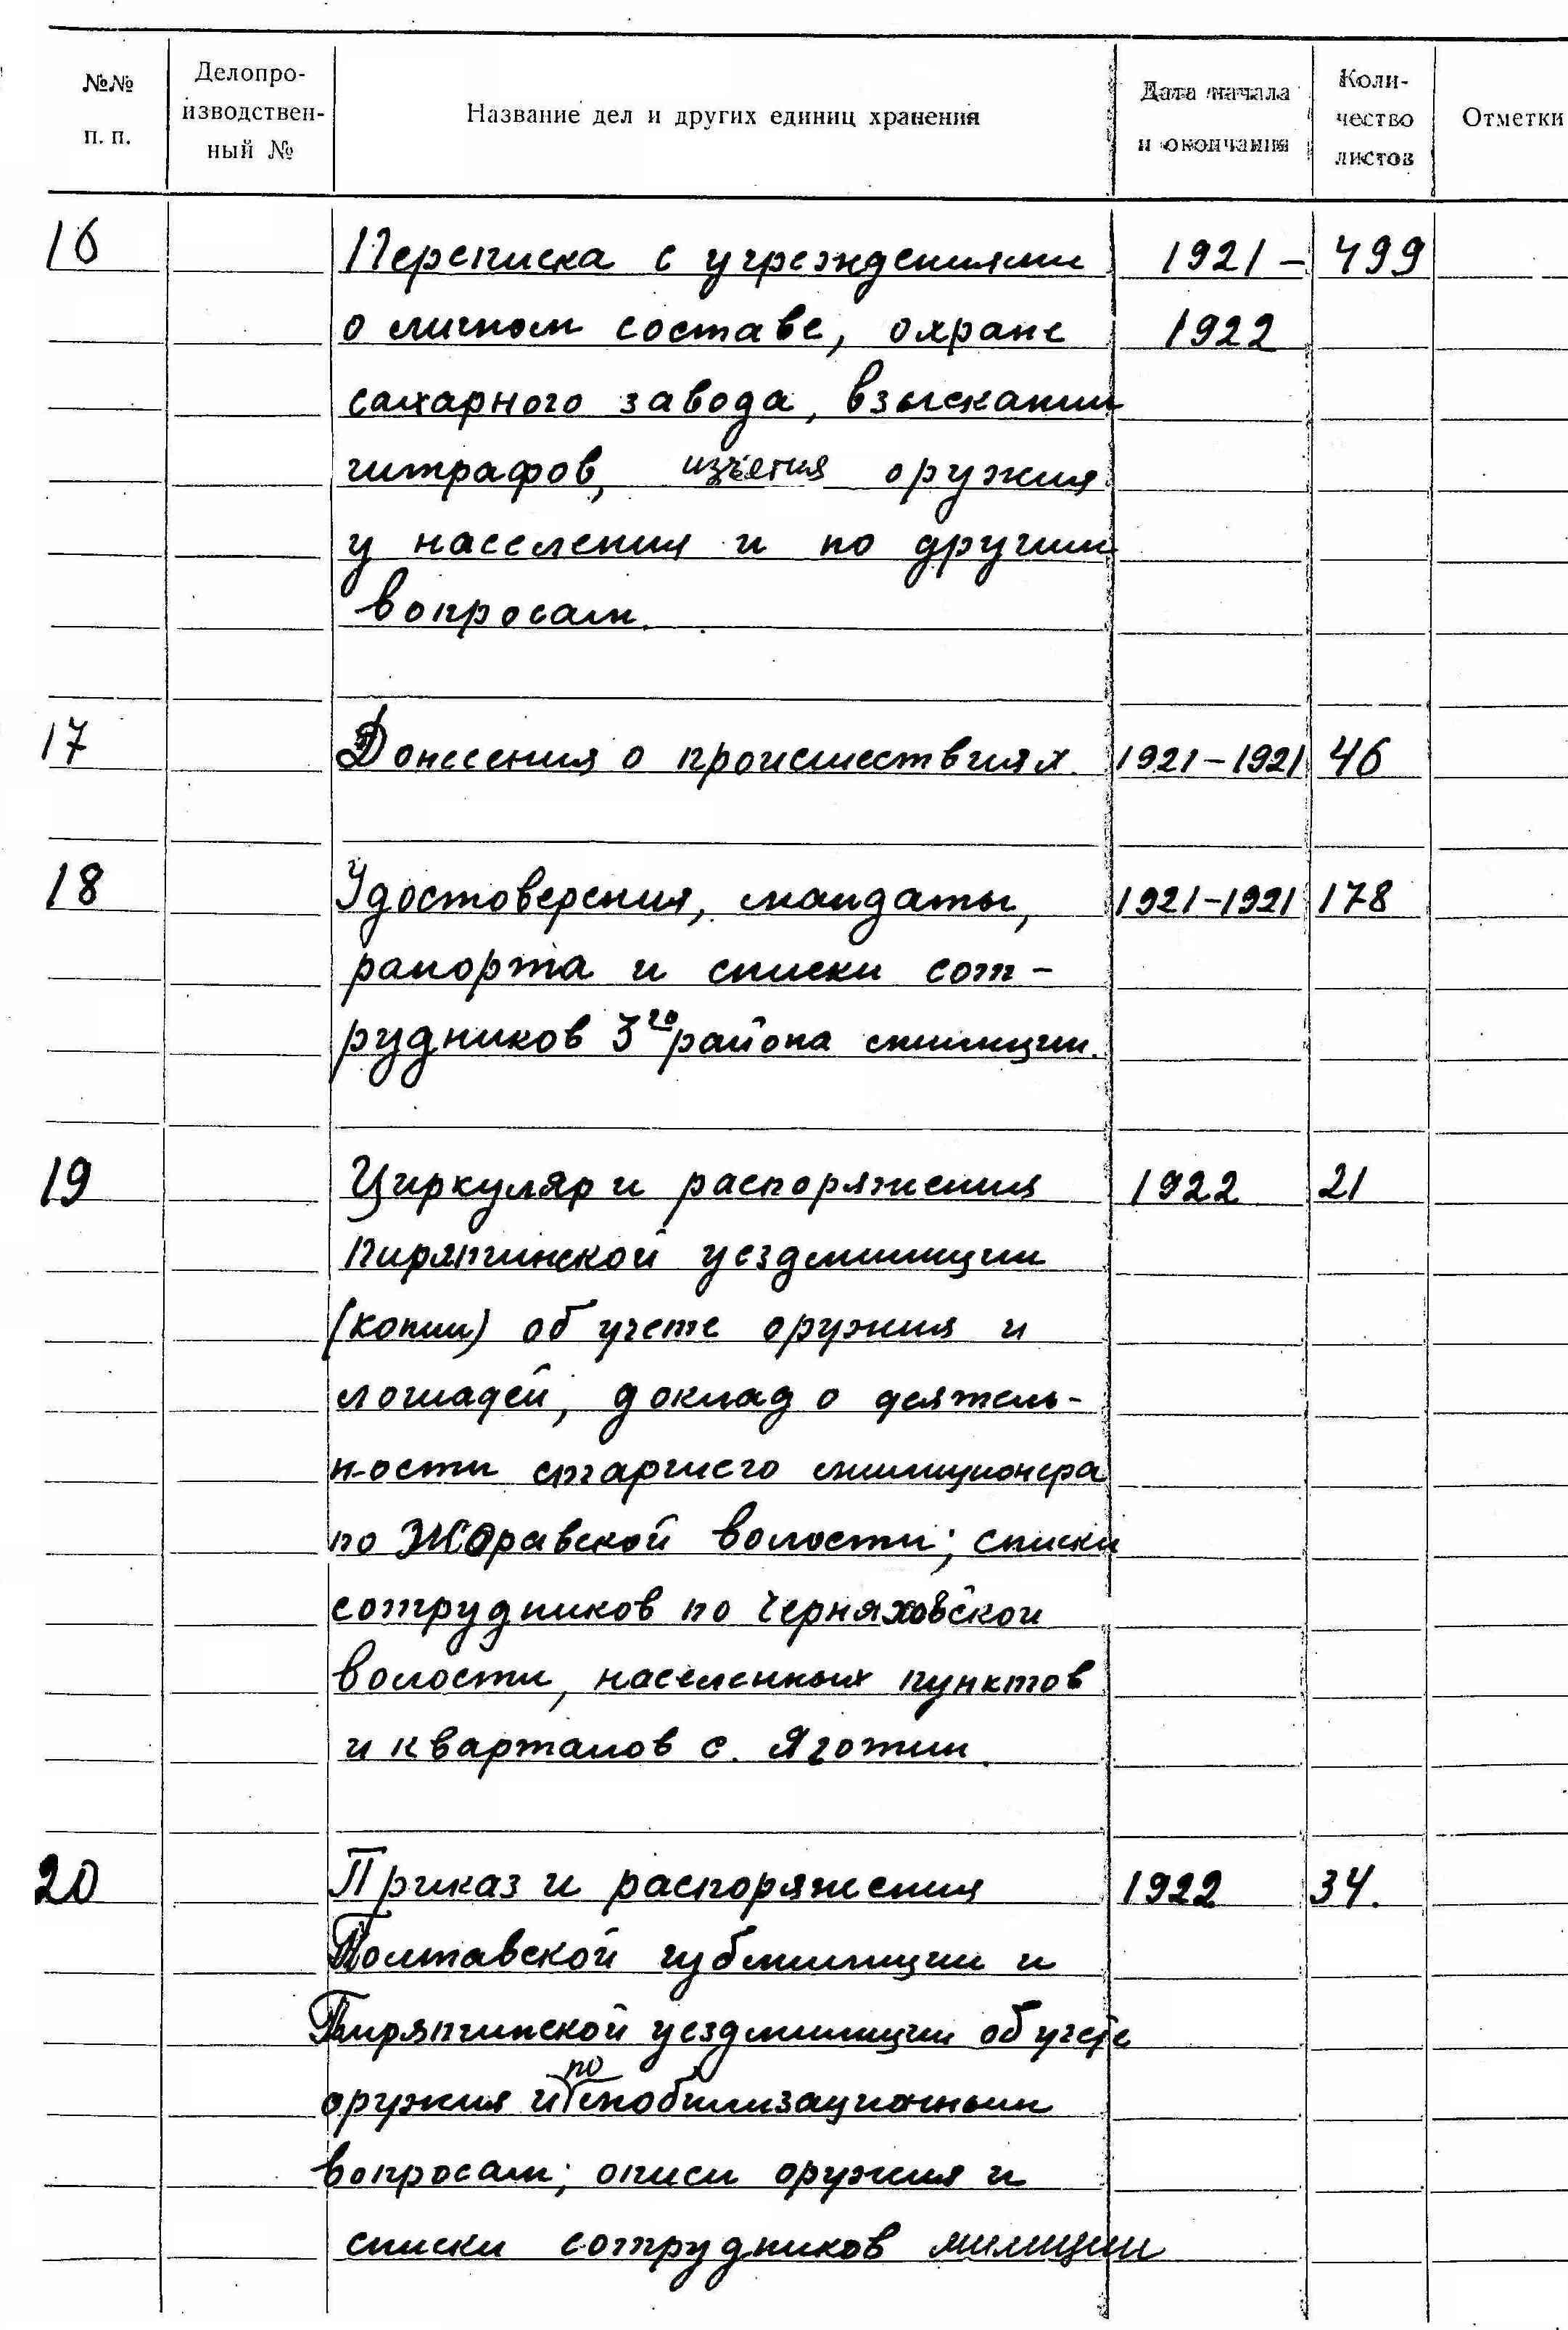 №№ п. п. Делопроизводственный № Название дел и других единиц хранения Дата начала и окончания Количество листов Отметки
16 Переписка с учреждениями 1921 – 499
о личном составе, охране 1922
сахарного завода, взыскании
штрафов, изъятия оружия
у населения и по другим
вопросам.
17 Донесения о происшествиях. 1921–1921 46
18 Удостоверения, мандаты, 1921–1921 178
рапорта и списки сот-
рудников 3го района милиции.
19 Циркуляр и распоряжения 1922 21
Пирятинской уездмилиции
(копии) об учете оружия и
лошадей, доклад о деятель-
ности старшего милиционера
по Жоравской волости; списки
сотрудников по Черняховской
волости, населенных пунктов
и кварталов с. Яготин.
20 Приказ и распоряжения 1922 34.
Полтавской губмилиции и
Пирятинской уездмилиции об учете
оружия и по мобилизационным
вопросам; описи оружия и
списки сотрудников милиции